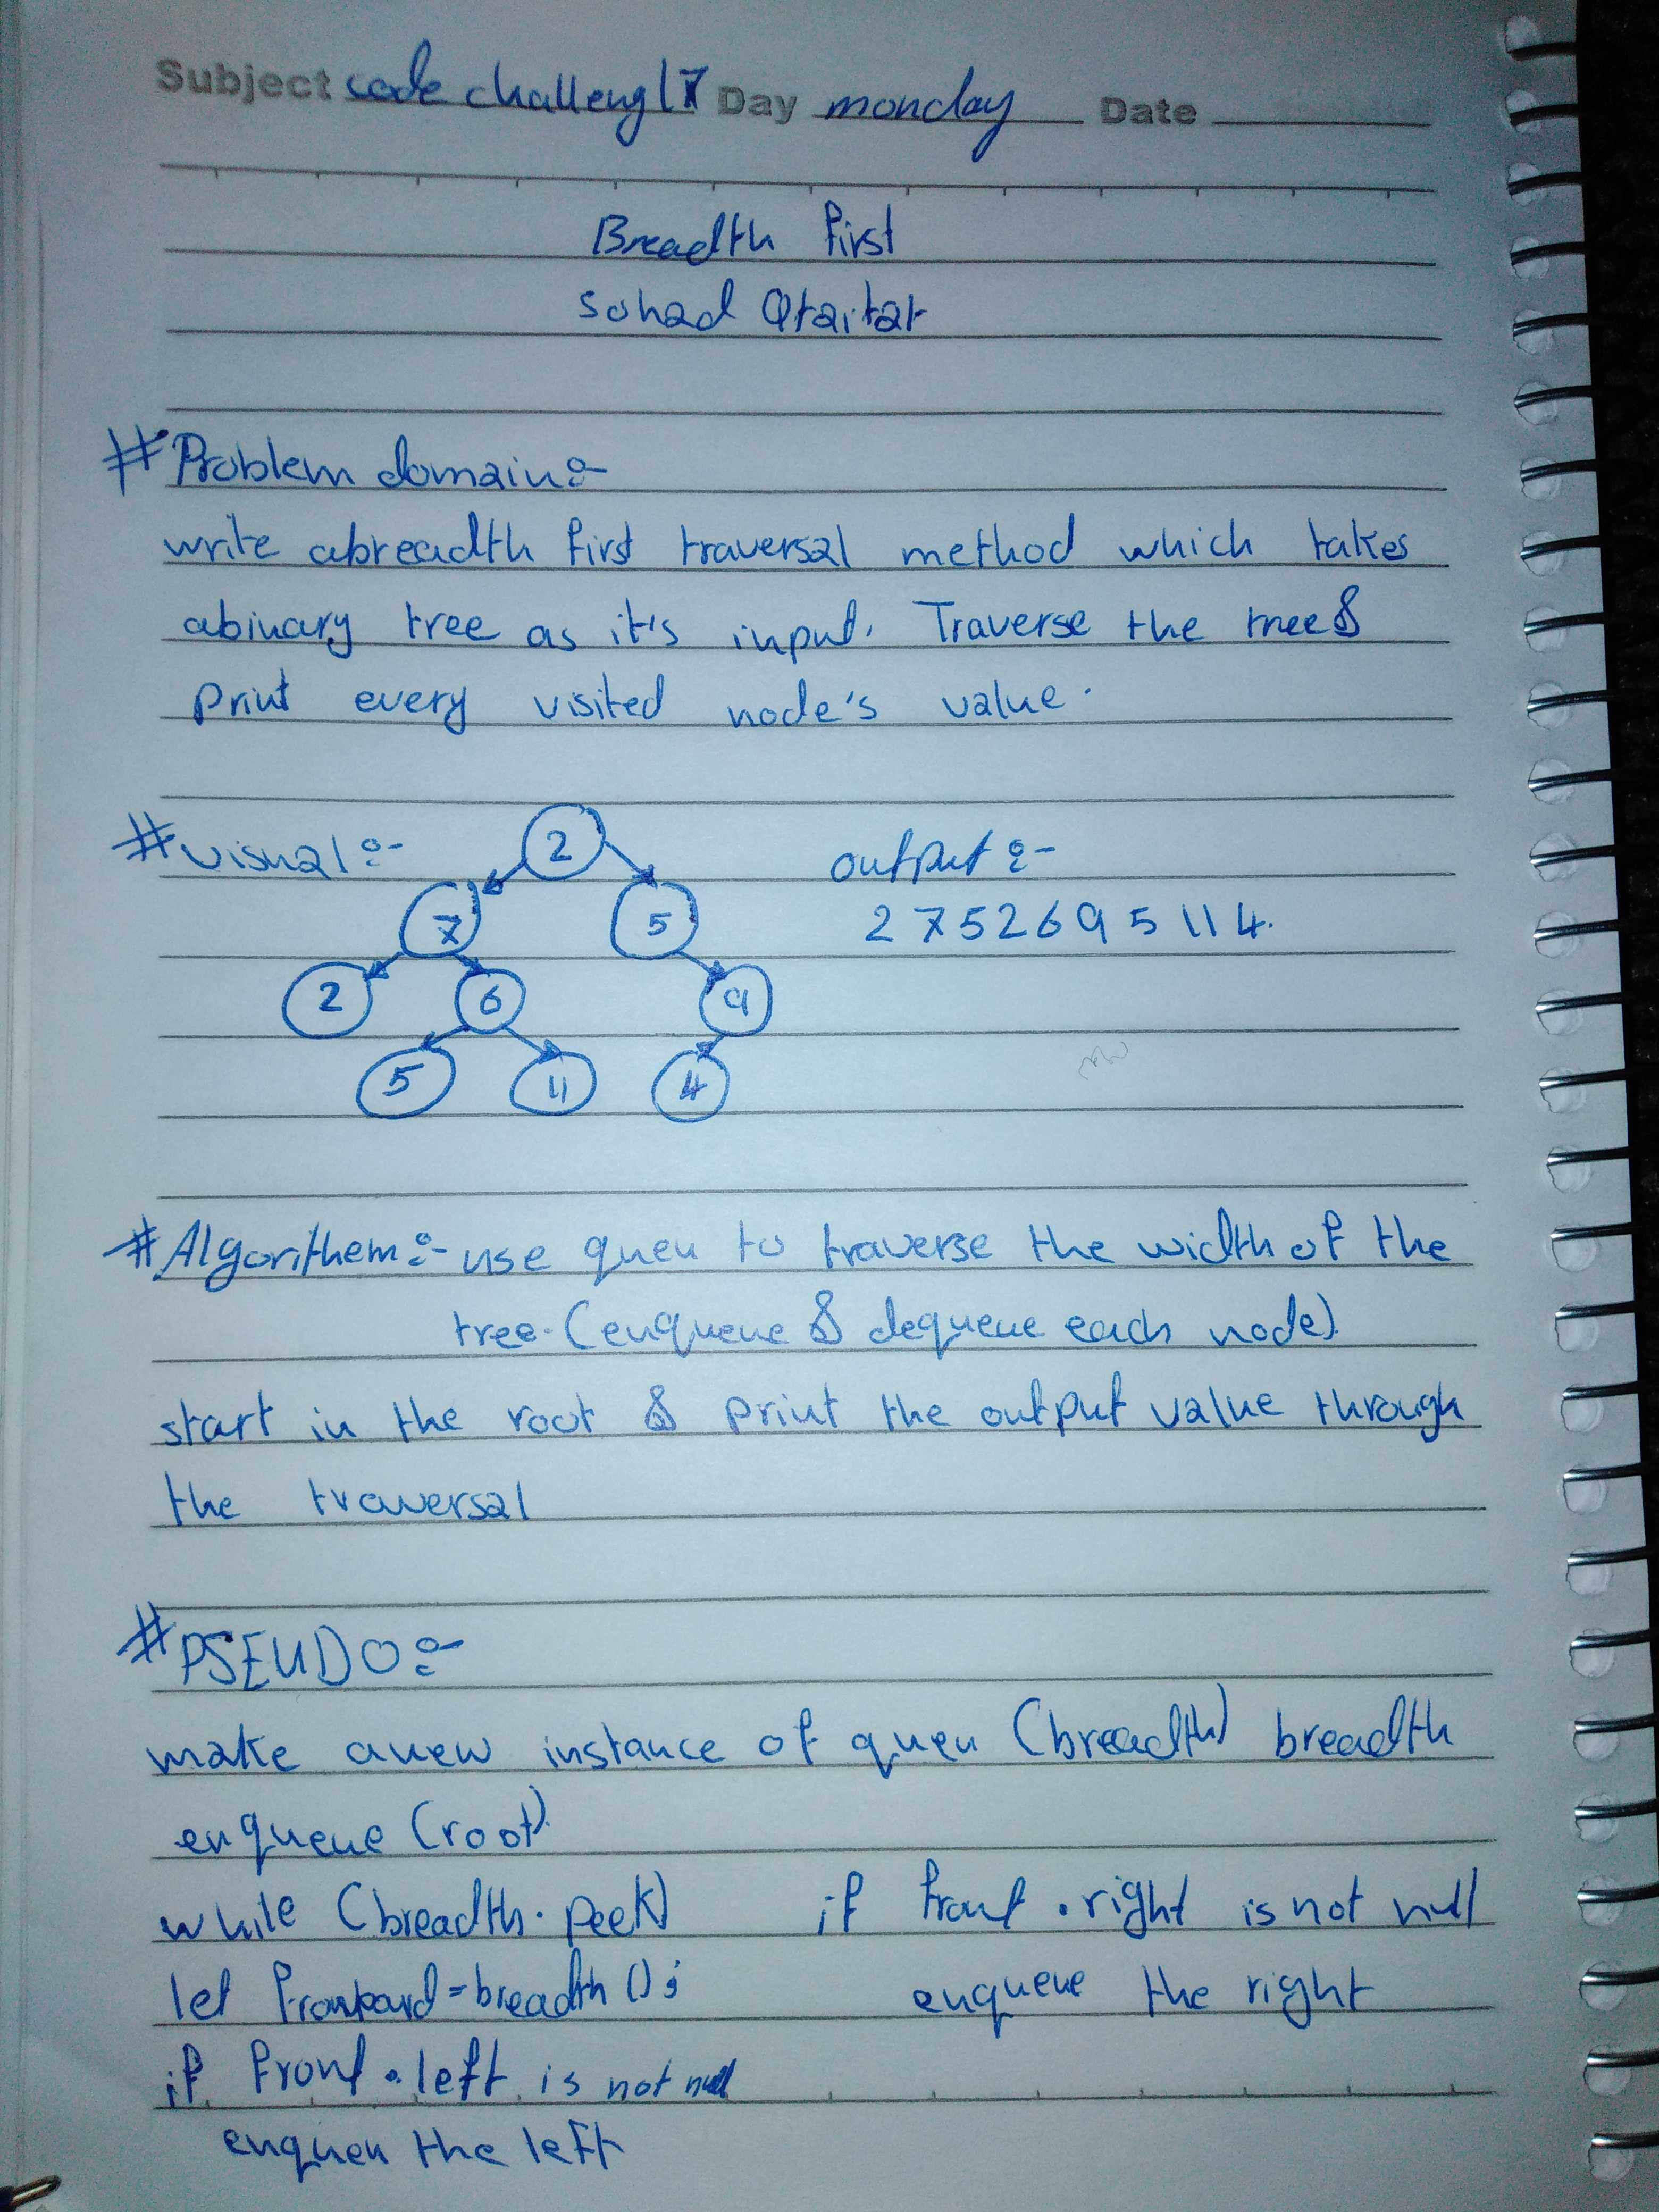 Subject code challeng 17 Day monday Date
Breadth first
Sohad Qtaitat
# Problem domain:-
write abreadth first traversal method which takes
abinary tree as it's input. Traverse the tree &
print every visited node's value.
# visual:-
2
output:-
7 5
2 7 5 2 6 9 5 11 4.
2 6 9
5 11 4
# Algorithem:- use queu to traverse the width of the
tree. (enqueue & dequeue each node).
start in the root & print the output value through
the traversal
# PSEUDO:-
make anew instance of queu (breadth) breadth
enqueue (root).
while (breadth. peek)
let = breadth ();
if front . left is not null
enqueu the left
if front . right is not null
enqueue the right